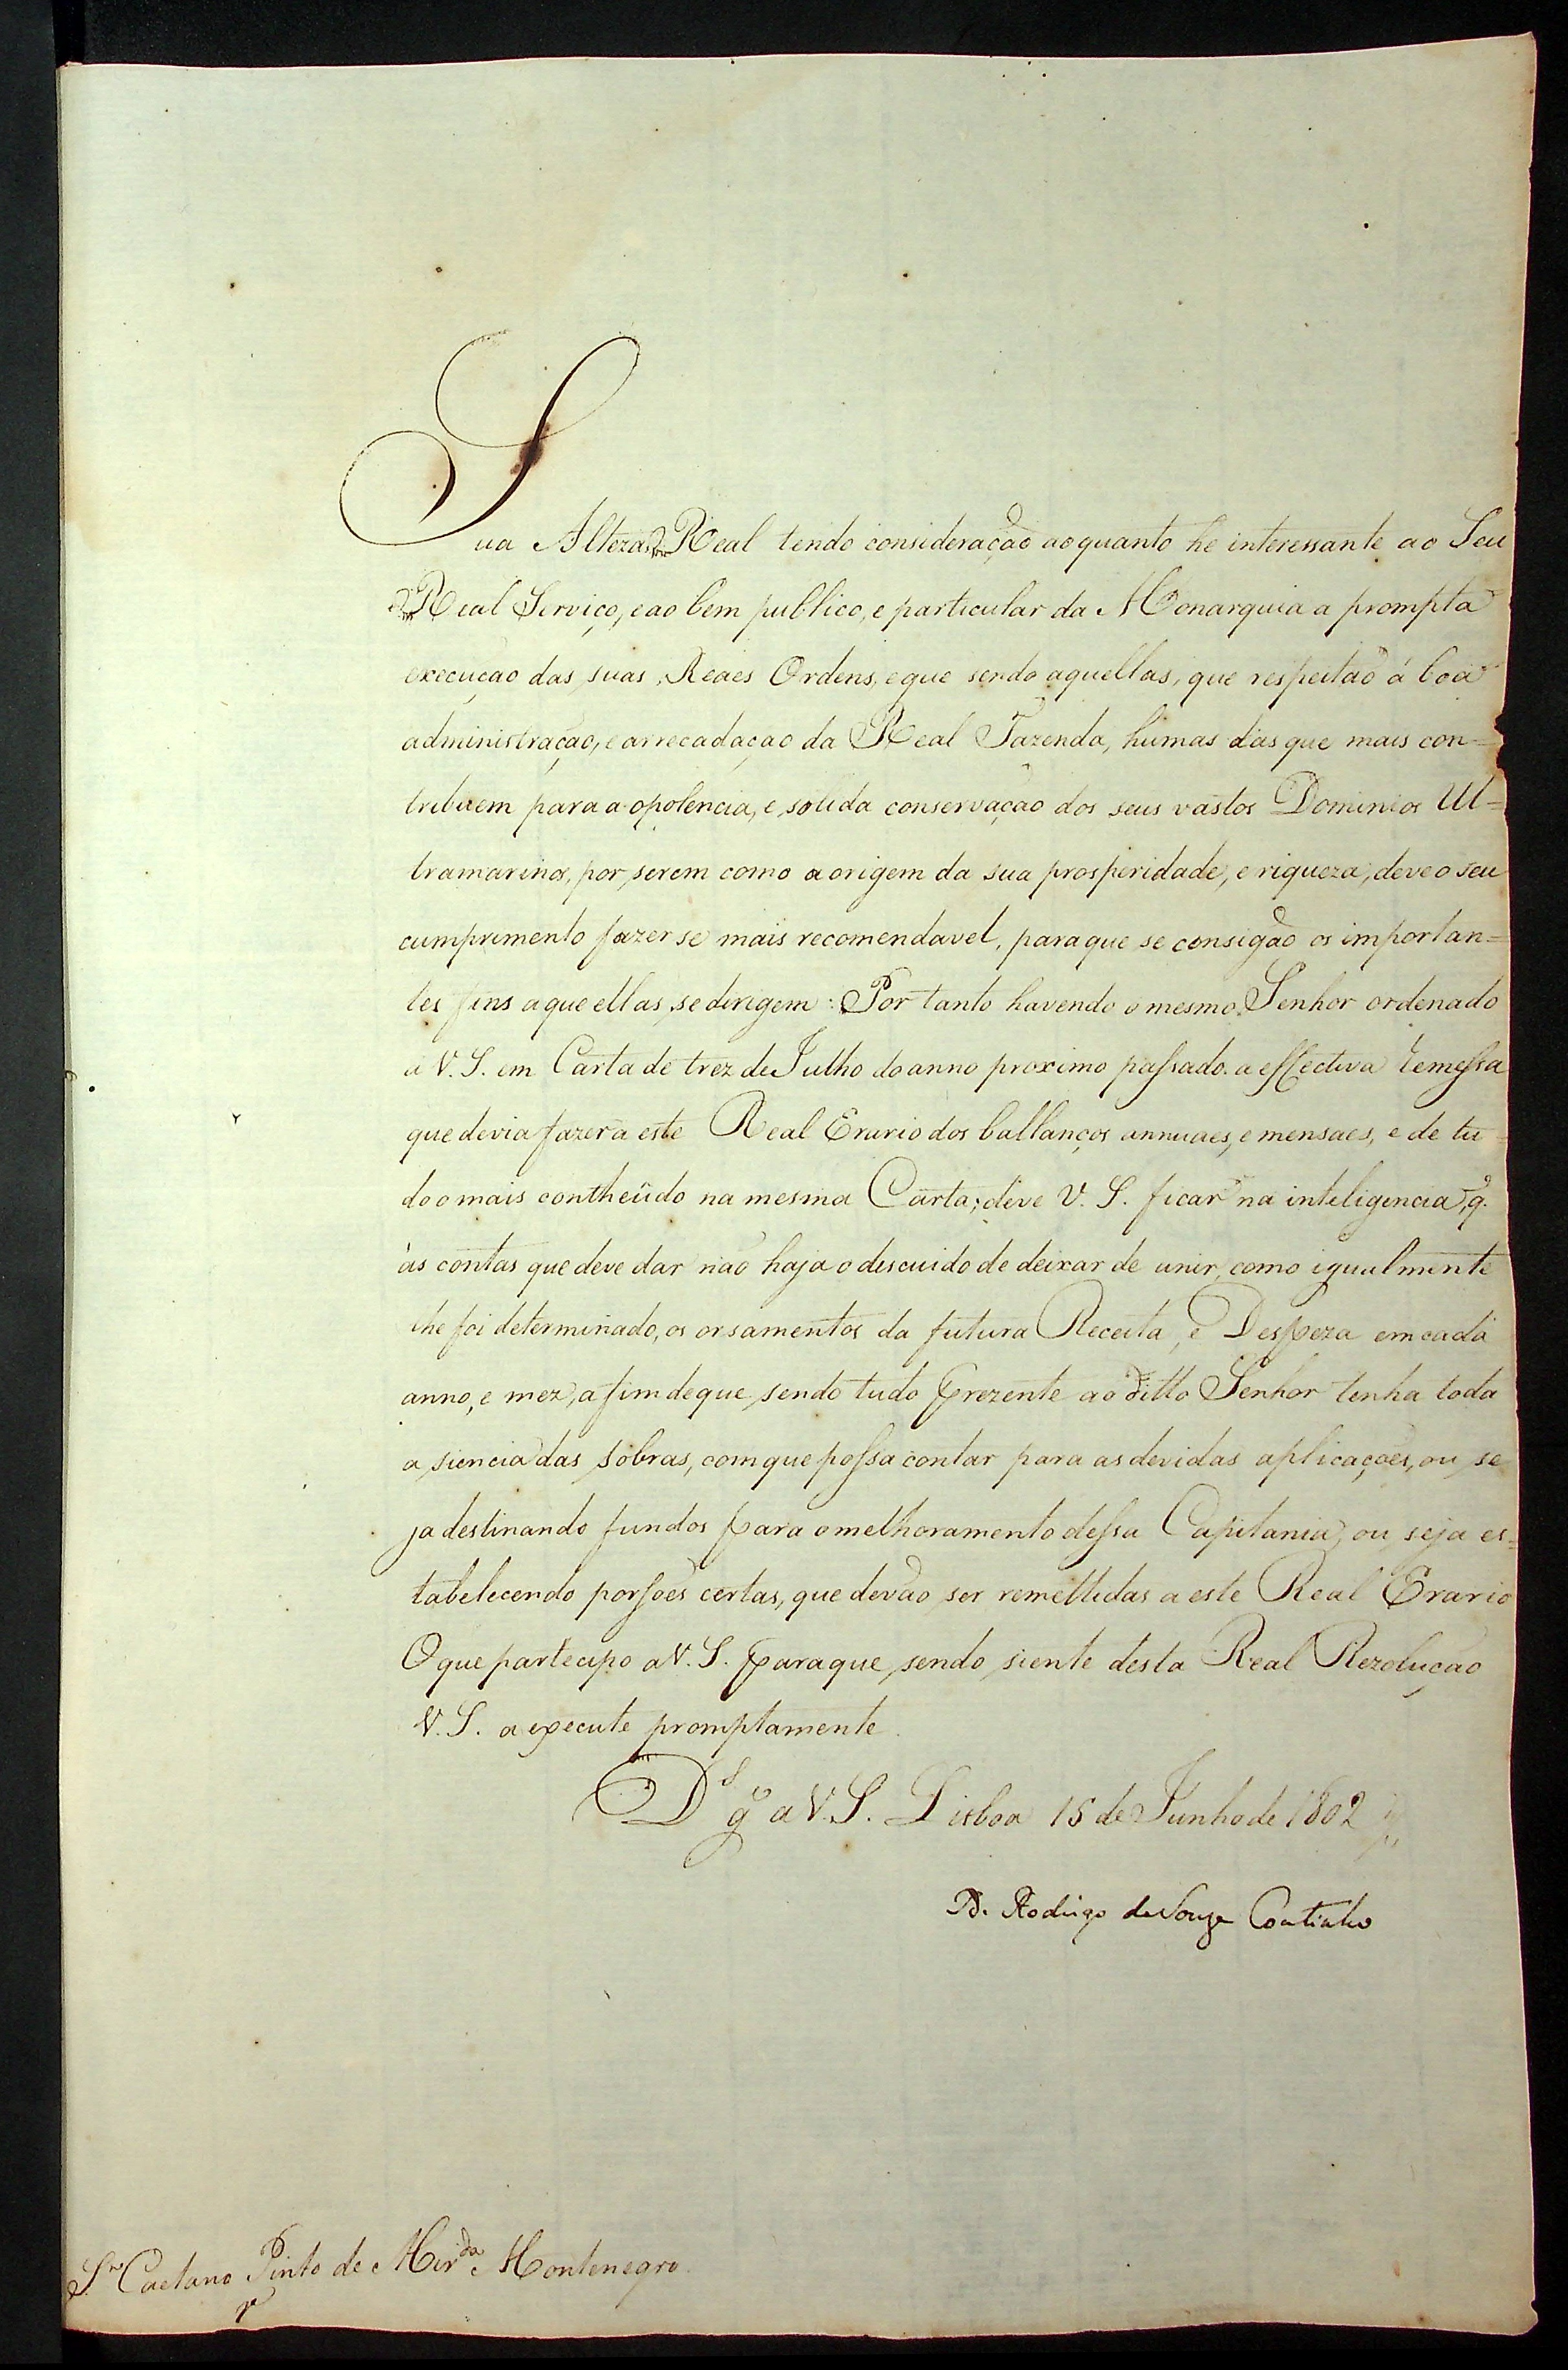 Sua Alteza Real tendo consideração ao quanto he interessante ao Seu
Real Serviço, e ao bem publico, e particular da Monarquia a prompta
execução das suas Reaes Ordens, e que sendo aquellas, que respeitão á boa
administração, e arrecadação da Real Fazenda, humas das que mais con=
tribuem para a opolencia, e solida conservação dos seus vastos Dominios Ul=
tramarinos, por serem como a origem da sua prosperidade, e riqueza, deve o seu
cumprimento fazer se mais recomendavel, para que se consigão os importan=
tes fins a que ellas se dirigem: Por tanto havendo o mesmo Senhor ordenado
a V. S. em Carta de trez de Julho do anno proximo passado a effectiva remessa
que devia fazer a este Real Erario dos ballanços annuaes, e mensaes, e de tu=
do o mais contheúdo na mesma Carta; deve V. S. ficar na inteligencia, q.
ás contas que deve dar não haja o descuido de deixar de unir, como igualmente
lhe foi determinado, os orsamentos da futura Receita, e Despeza em cada
anno, e mez, a fim de que sendo tudo prezente ao ditto Senhor tenha toda
a siencia das sobras, com que possa contar para as devidas aplicações, ou se
ja destinando fundos para o melhoramento dessa Capitania, ou seja es=
tabelecendo porsões certas, que devão ser remettidas a este Real Erario
O que partecipo a V. S. para que sendo siente desta Real Rezolução
V. S. a execute promptamente.
Ds ge a V. S. Lisboa 15 de Junho de 1802
D. Rodrigo de Souza Coutinho
Snr Caetano Pinto de Mirda Montenegro